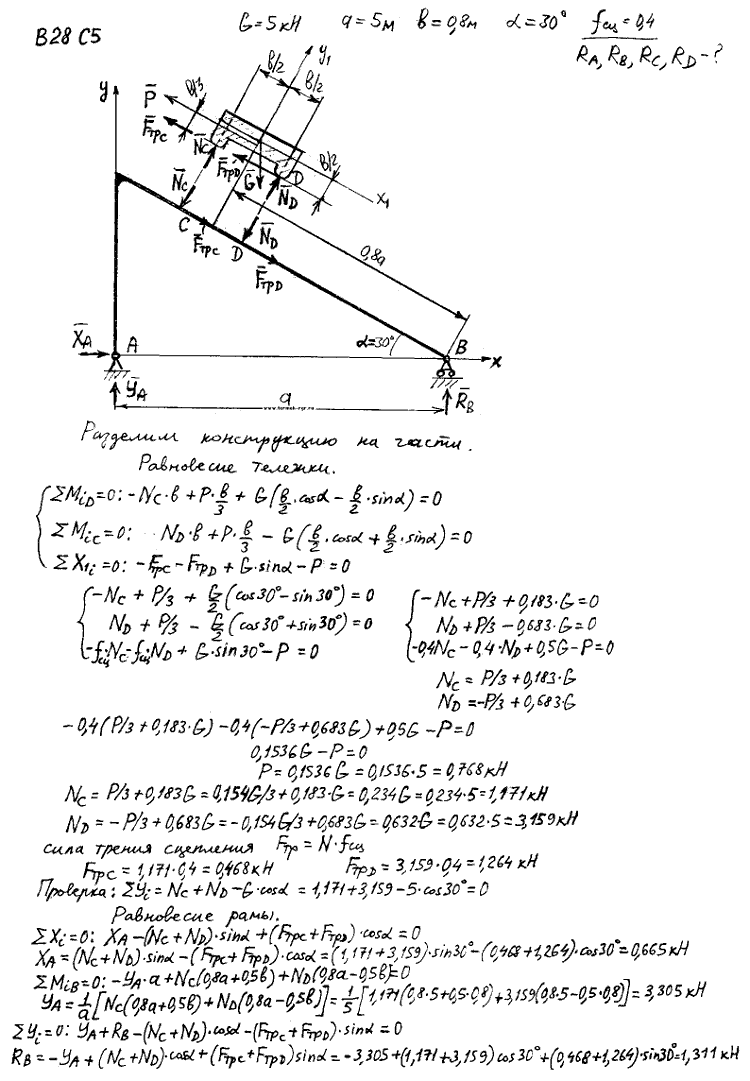 В28 С5
G=5кН a=5м в=0,8м α=30° fсц=0,4
RA, RB, RC, RD-?
y
y1
в/2
в/2
в/3
P̅
F̅трС
N̅C
F̅трD
D
в/2
N̅C
G̅
N̅D
x1
C
F̅трС
D
N̅D
F̅трD
0,8a
X̅A
A
α=30°
B
x
Y̅A
a
R̅B
Разделим конструкцию на части.
Равновесие тележки.
ΣMiD=0: -NC·в+P·в/3+G(в/2·cosα-в/2·sinα)=0
ΣMiC=0: ND·в+P·в/3-G(в/2·cosα+в/2·sinα)=0
ΣX1i=0: -FтрС-FтрD+G·sinα-P=0
-NC+P/3+G/2(cos30°-sin30°)=0
ND+P/3-G/2(cos30°+sin30°)=0
-fсц·NC-fсц·ND+G·sin30°-P=0
-NC+P/3+0,183·G=0
ND+P/3-0,683·G=0
-0,4NC-0,4·ND+0,5G-P=0
NC=P/3+0,183·G
ND=-P/3+0,683·G
-0,4(P/3+0,183·G)-0,4(-P/3+0,683G)+0,5G-P=0
0,1536G-P=0
P=0,1536G=0,1536·5=0,768кН
NC=P/3+0,183G=0,154G/3+0,183·G=0,234G=0,234·5=1,171кН
ND=-P/3+0,683G=-0,154G/3+0,683G=0,632G=0,632·5=3,159кН
сила трения сцепления Fтр=N·fсц
FтрС=1,171·0,4=0,468кН FтрD=3,159·0,4=1,264кН
Проверка: ΣYi=NC+ND-G·cosα=1,171+3,159-5·cos30°=0
Равновесие рамы.
ΣXi=0: XA-(NC+ND)·sinα+(FтрС+FтрD)·cosα=0
XA=(NC+ND)·sinα-(FтрС+FтрD)·cosα=(1,171+3,159)·sin30°-(0,468+1,264)·cos30°=0,665кН
ΣMiB=0: -YA·a+NC(0,8a+0,5в)+ND(0,8a-0,5в)=0
YA=1/a[NC(0,8a+0,5в)+ND(0,8a-0,5в)]=1/5[1,171(0,8·5+0,5·0,8)+3,159(0,8·5-0,5·0,8)]=3,305кН
ΣYi=0: YA+RB-(NC+ND)·cosα-(FтрС+FтрD)·sinα=0
RB=-YA+(NC+ND)·cosα+(FтрС+FтрD)sinα=-3,305+(1,171+3,159)cos30°+(0,468+1,264)·sin30°=1,311кН